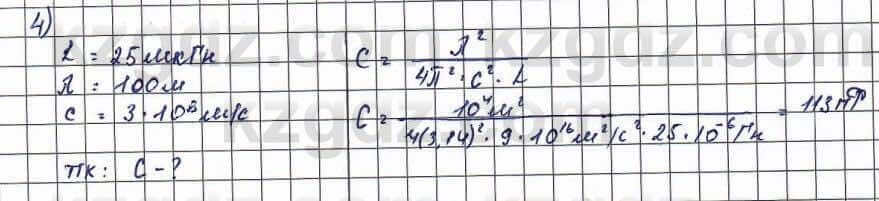 4)
L = 25мкГн
λ = 100м
c = 3·10⁸м/с
тк: C - ?
C = λ² / 4π²·c²·L
C = 10⁴м² / 4(3,14)²·9·10¹⁶м²/с²·25·10⁻⁶Гн = 113пФ
kzgdz.com kzgdz.com
kzgdz.com